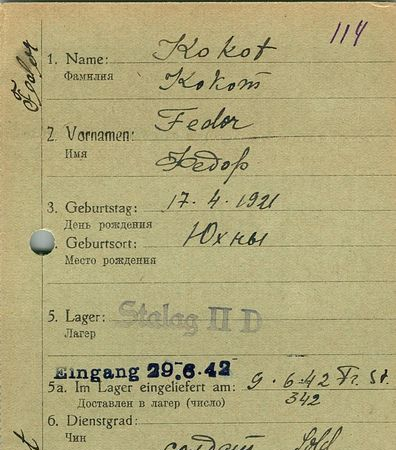 114
Fedor
1. Name: Kokot
Фамилия Кокот
2. Vornamen: Fedor
Имя Федор
3. Geburtstag: 17.4.1921
День рождения
4. Geburtsort: Юхны
Место рождения
5. Lager: Stalag II D
Лагерь
Eingang 29.6.42
5a. Im Lager eingeliefert am: 9.6.42 Fr. St.
Доставлен в лагерь (число) 342
6. Dienstgrad:
Чин солдат Sold